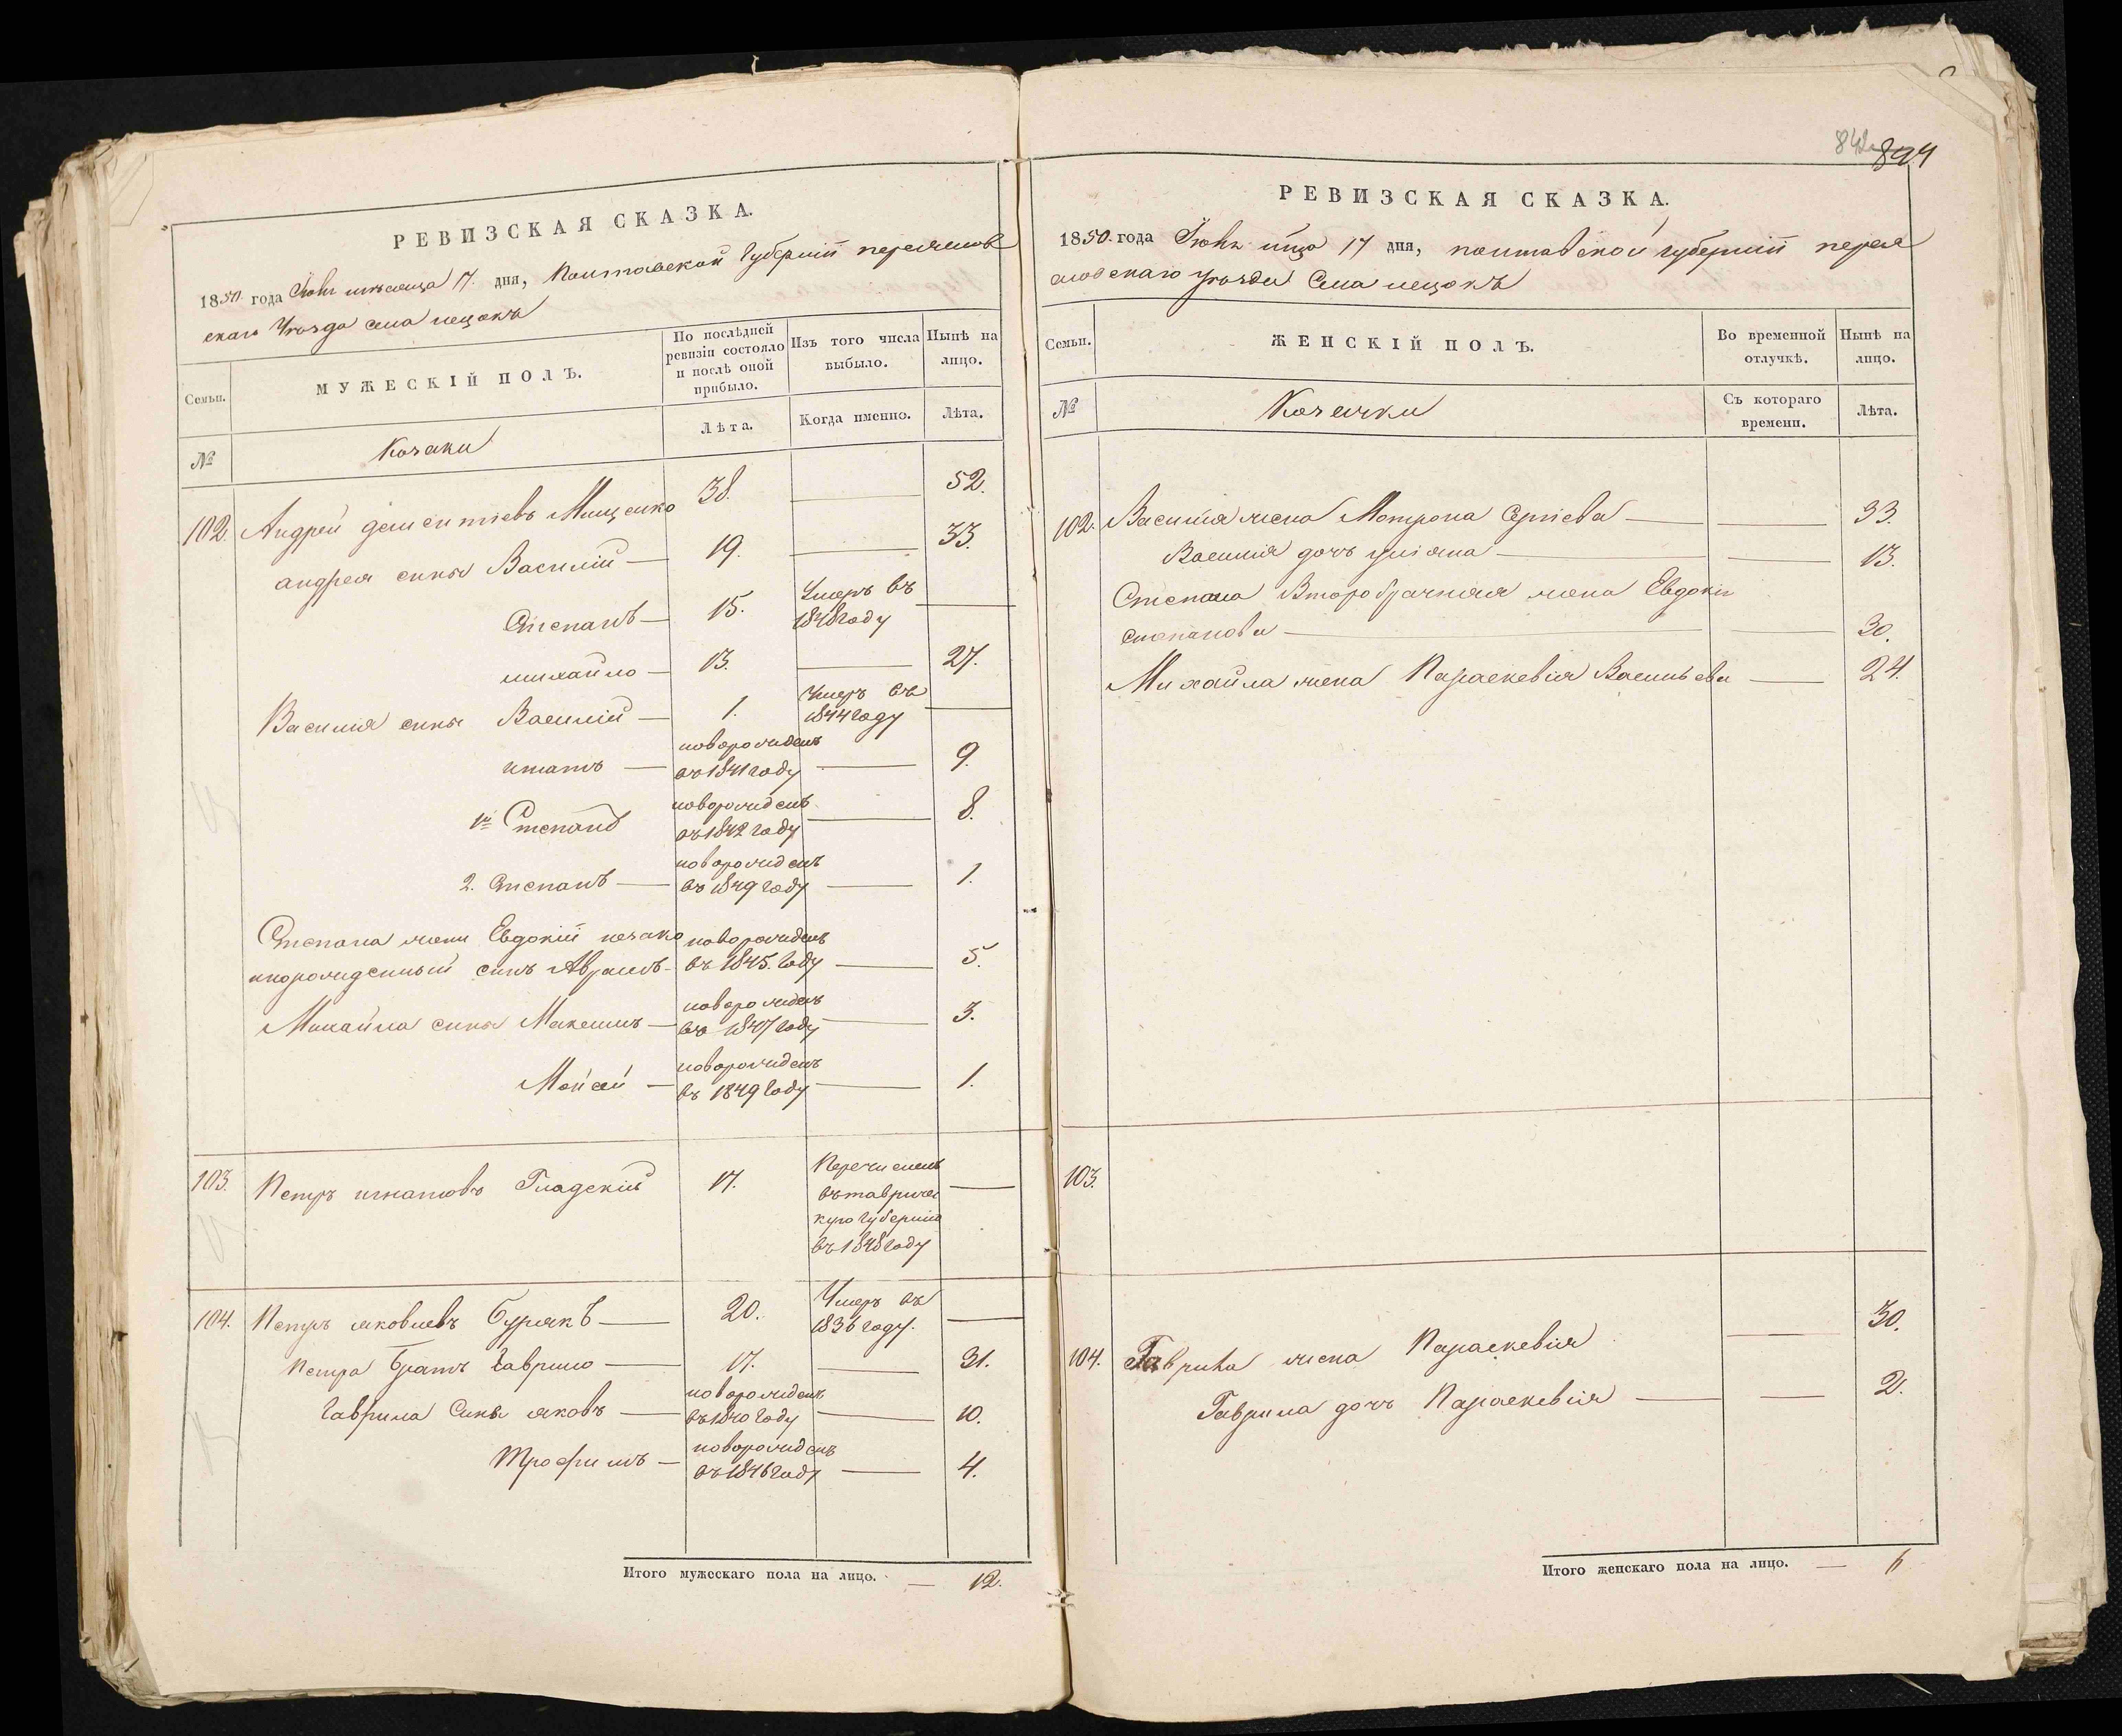 842
894
РЕВИЗСКАЯ СКАЗКА.
1850 года Июня месяца 17 дня, Полтавской Губернии переяслов
скаго Уезда села пещокъ
Семьи.
МУЖЕСКІЙ ПОЛЪ.
По послѣдней ревизіи состояло и послѣ оной прибыло.
Изъ того числа выбыло.
Нынѣ на лицо.
№
Козаки
Лѣта.
Когда именно.
Лѣта.
102. Андрей Мищенко 38. — 52.
андрея сины Василий — 19. — 33.
Степанъ — 15. Умеръ въ 1848 году —
михайло — 13. — 27.
Василия сины Василий — 1. Умеръ въ 1844 году —
игнатъ — новорожденъ въ 1841 году — 9.
1й Степанъ новорожденъ въ 1842 году — 8.
2. Степанъ — новорожденъ въ 1849 году — 1.
Степана жени Евдокий незако новорожденъ
норожденный синъ Аврамъ - въ 1845. году — 5.
Михайла сины Максимъ — новорожденъ въ 1847 году — 3.
Мойсей — новорожденъ въ 1849 году — 1.
103. Петръ игнатовъ Гладский 17. Перечисленъ въ тавричес кую Губернию въ 1848 году —
104. Петръ яковлевъ Бурякъ — 20. Умеръ въ 1836 году. —
Петра братъ Гаврило — 17. — 31.
Гаврила Сины яковъ — новорожденъ въ 1840 году — 10.
Трофимъ — новорожденъ въ 1846 году — 4.
Итого мужескаго пола на лицо. — 12.
РЕВИЗСКАЯ СКАЗКА.
1850. года Июня мца 17 дня, полтавской губернии перея
словскаго уезда Села пещокъ
Семьи.
ЖЕНСКІЙ ПОЛЪ.
Во временной отлучкѣ.
Нынѣ на лицо.
№
Козачки
Съ котораго времени.
Лѣта.
102. Василия жена Мотрона Сергіева — — 33.
Василия дочь улияна — — 13.
Степана Второбрачная жена Евдокия
степанова — — 30.
Михайла жена Параскевія Васильева — 24.
103.
104. Гаврила жена Параскевія — 30.
Гаврила дочь Параскевія — — 2.
Итого женскаго пола на лицо. — 6